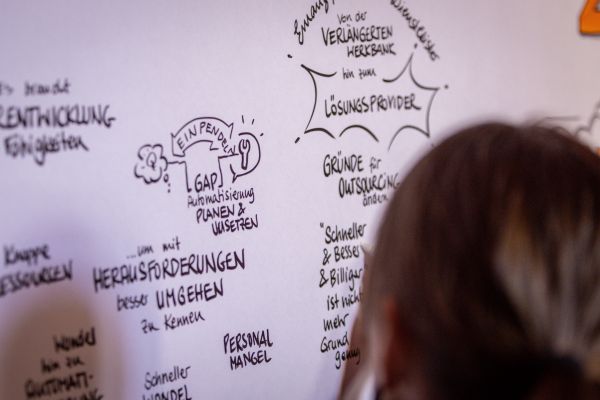 Von der
VERLÄNGERTEN
WERKBANK
hin zum
LÖSUNGSPROVIDER
braucht
ENTWICKLUNG
Fähigkeiten
EINPENDELN
GAP
Automatisierung
PLANEN &
UMSETZEN
GRÜNDE für
OUTSOURCING
ändern
"Schneller
& Besser
& Billiger
ist nicht
mehr
Grund
genug
Knappe
RESSOURCEN
...um mit
HERAUSFORDERUNGEN
besser UMGEHEN
zu können
Wandel
hin zu
PERSONAL
MANGEL
Schneller
WANDEL